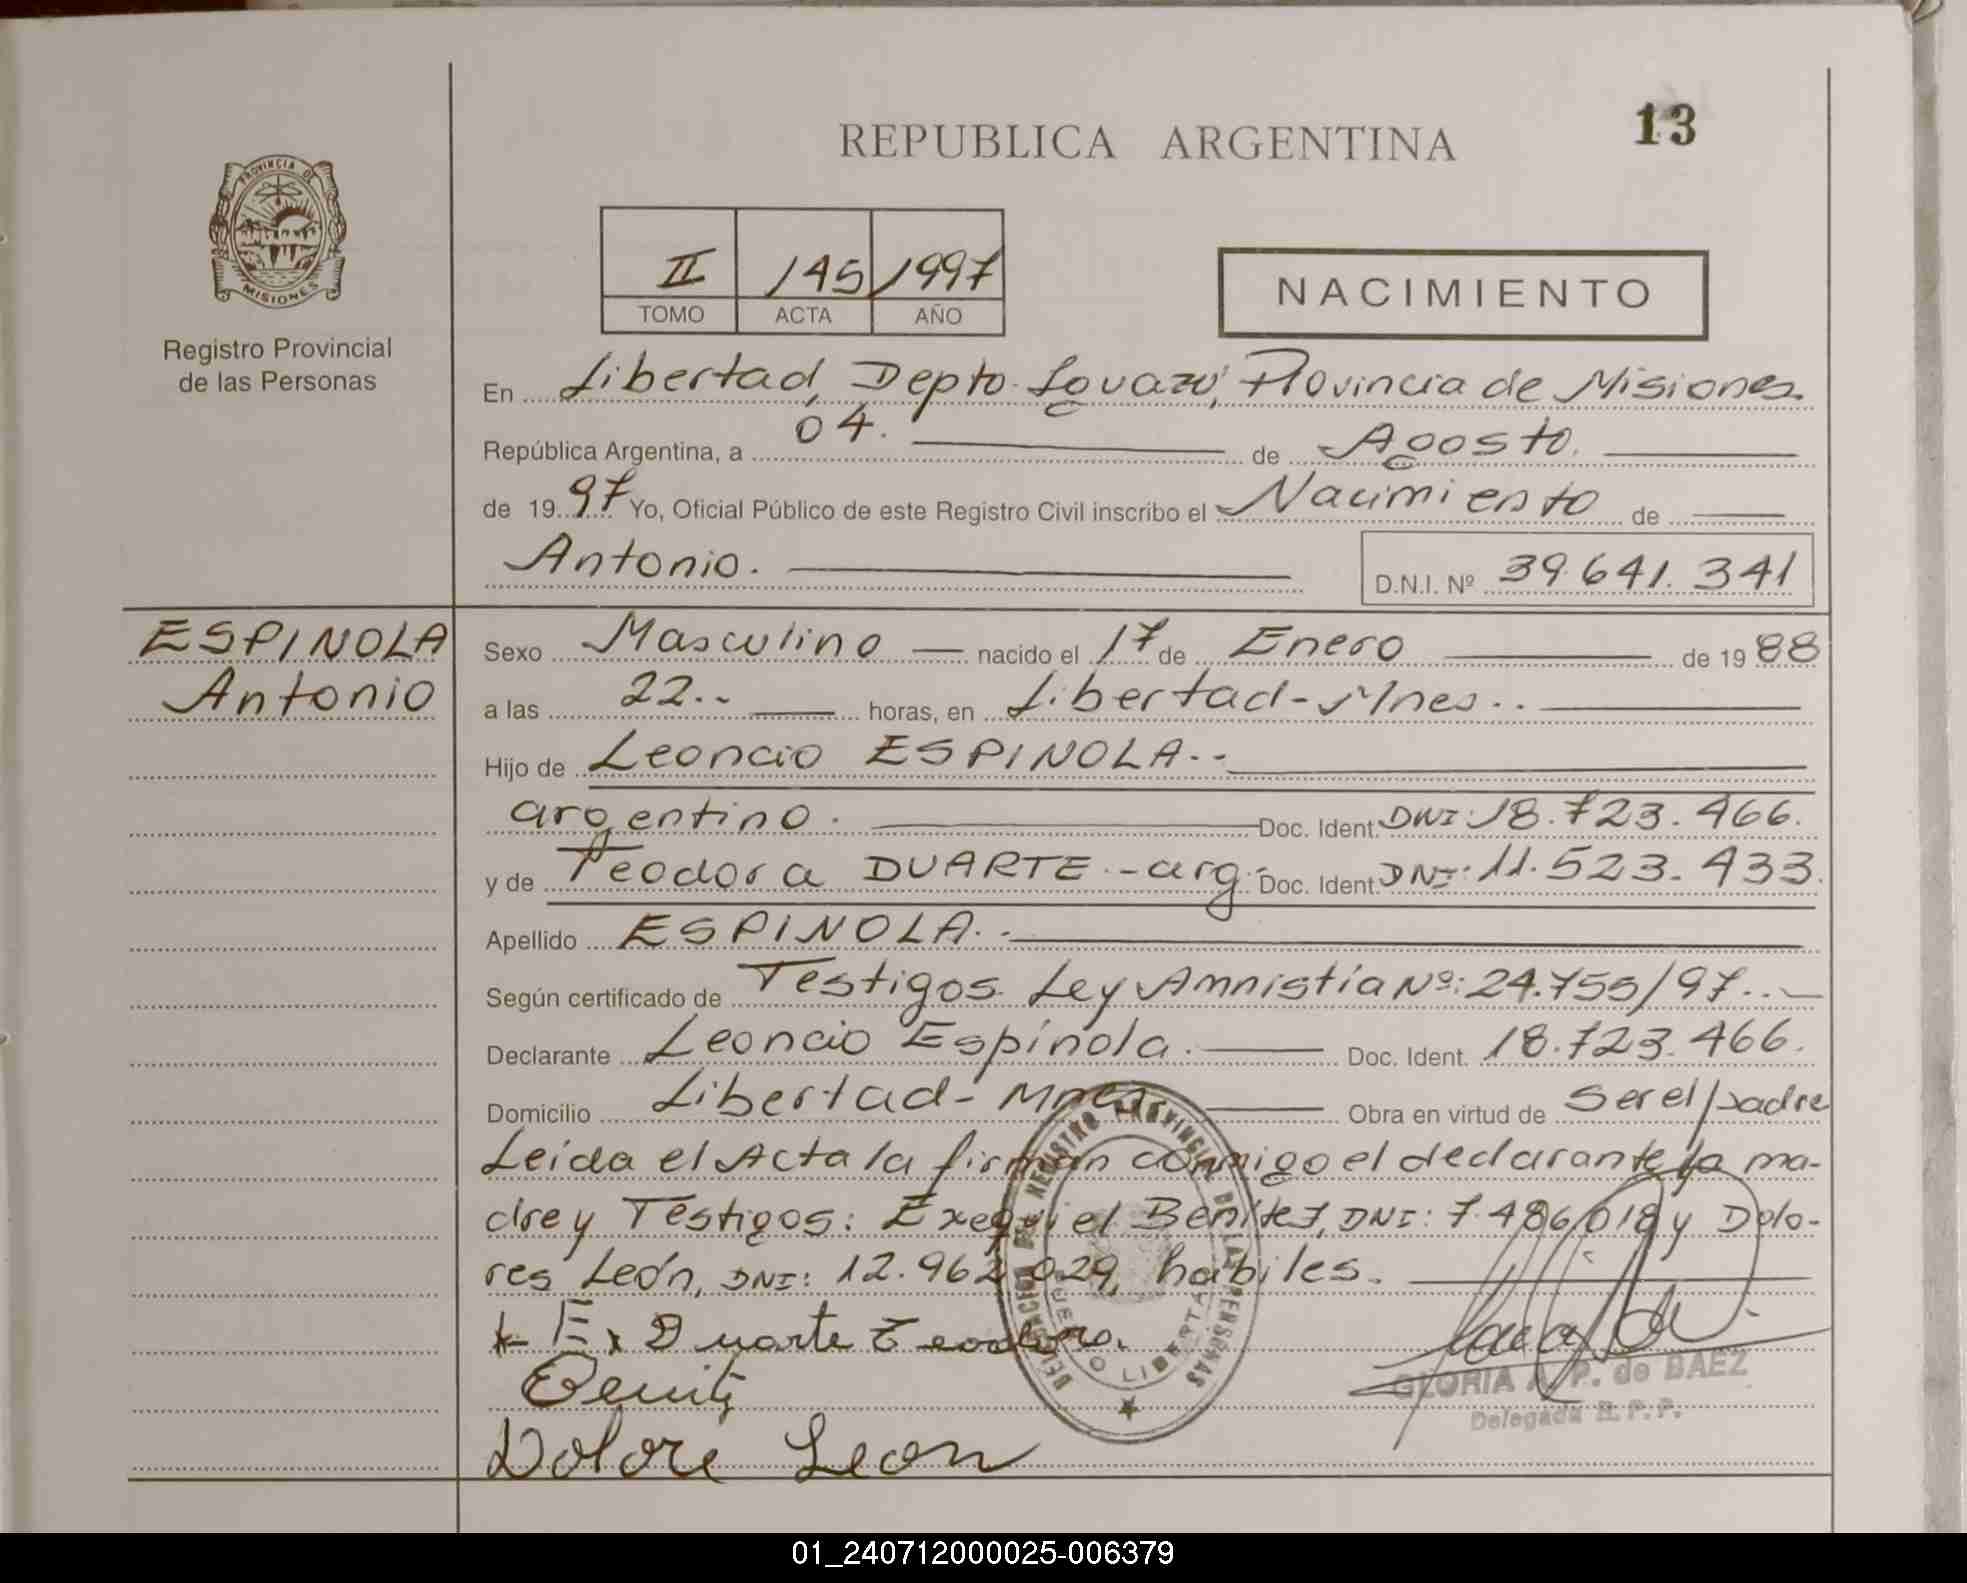 REPUBLICA ARGENTINA
13
PROVINCIA DE
MISIONES
Registro Provincial
de las Personas
II 145 1997
TOMO ACTA AÑO
NACIMIENTO
En Libertad, Depto. Iguazú, Provincia de Misiones.
República Argentina, a 04. de Agosto.
de 1997 Yo, Oficial Público de este Registro Civil inscribo el Nacimiento de
Antonio. D.N.I. Nº 39.641.341
ESPINOLA
Antonio
Sexo Masculino nacido el 17 de Enero de 1988
a las 22.. horas, en Libertad-Mnes..
Hijo de Leoncio ESPINOLA..
argentino. Doc. Ident. DNI: 18.723.466.
y de Teodora DUARTE.-arg.- Doc. Ident. DNI: 11.523.433.
Apellido ESPINOLA..
Según certificado de Testigos. Ley Amnistía Nº: 24.755/97..
Declarante Leoncio Espínola. Doc. Ident. 18.723.466.
Domicilio Libertad-Mnes. Obra en virtud de Ser el padre
Leída el Acta la firman conmigo el declarante la ma-
dre y Testigos: Exequiel Benítez, DNI: 7.486.018 y Dolo-
res León, DNI: 12.962.029, habiles.
Duarte Teodora.
Benitz
Dolore Leon
DELEGACION DEL REGISTRO PROVINCIAL DE LAS PERSONAS
PUERTO LIBERTAD
GLORIA A. P. de BAEZ
Delegada R. P. P.
01_240712000025-006379